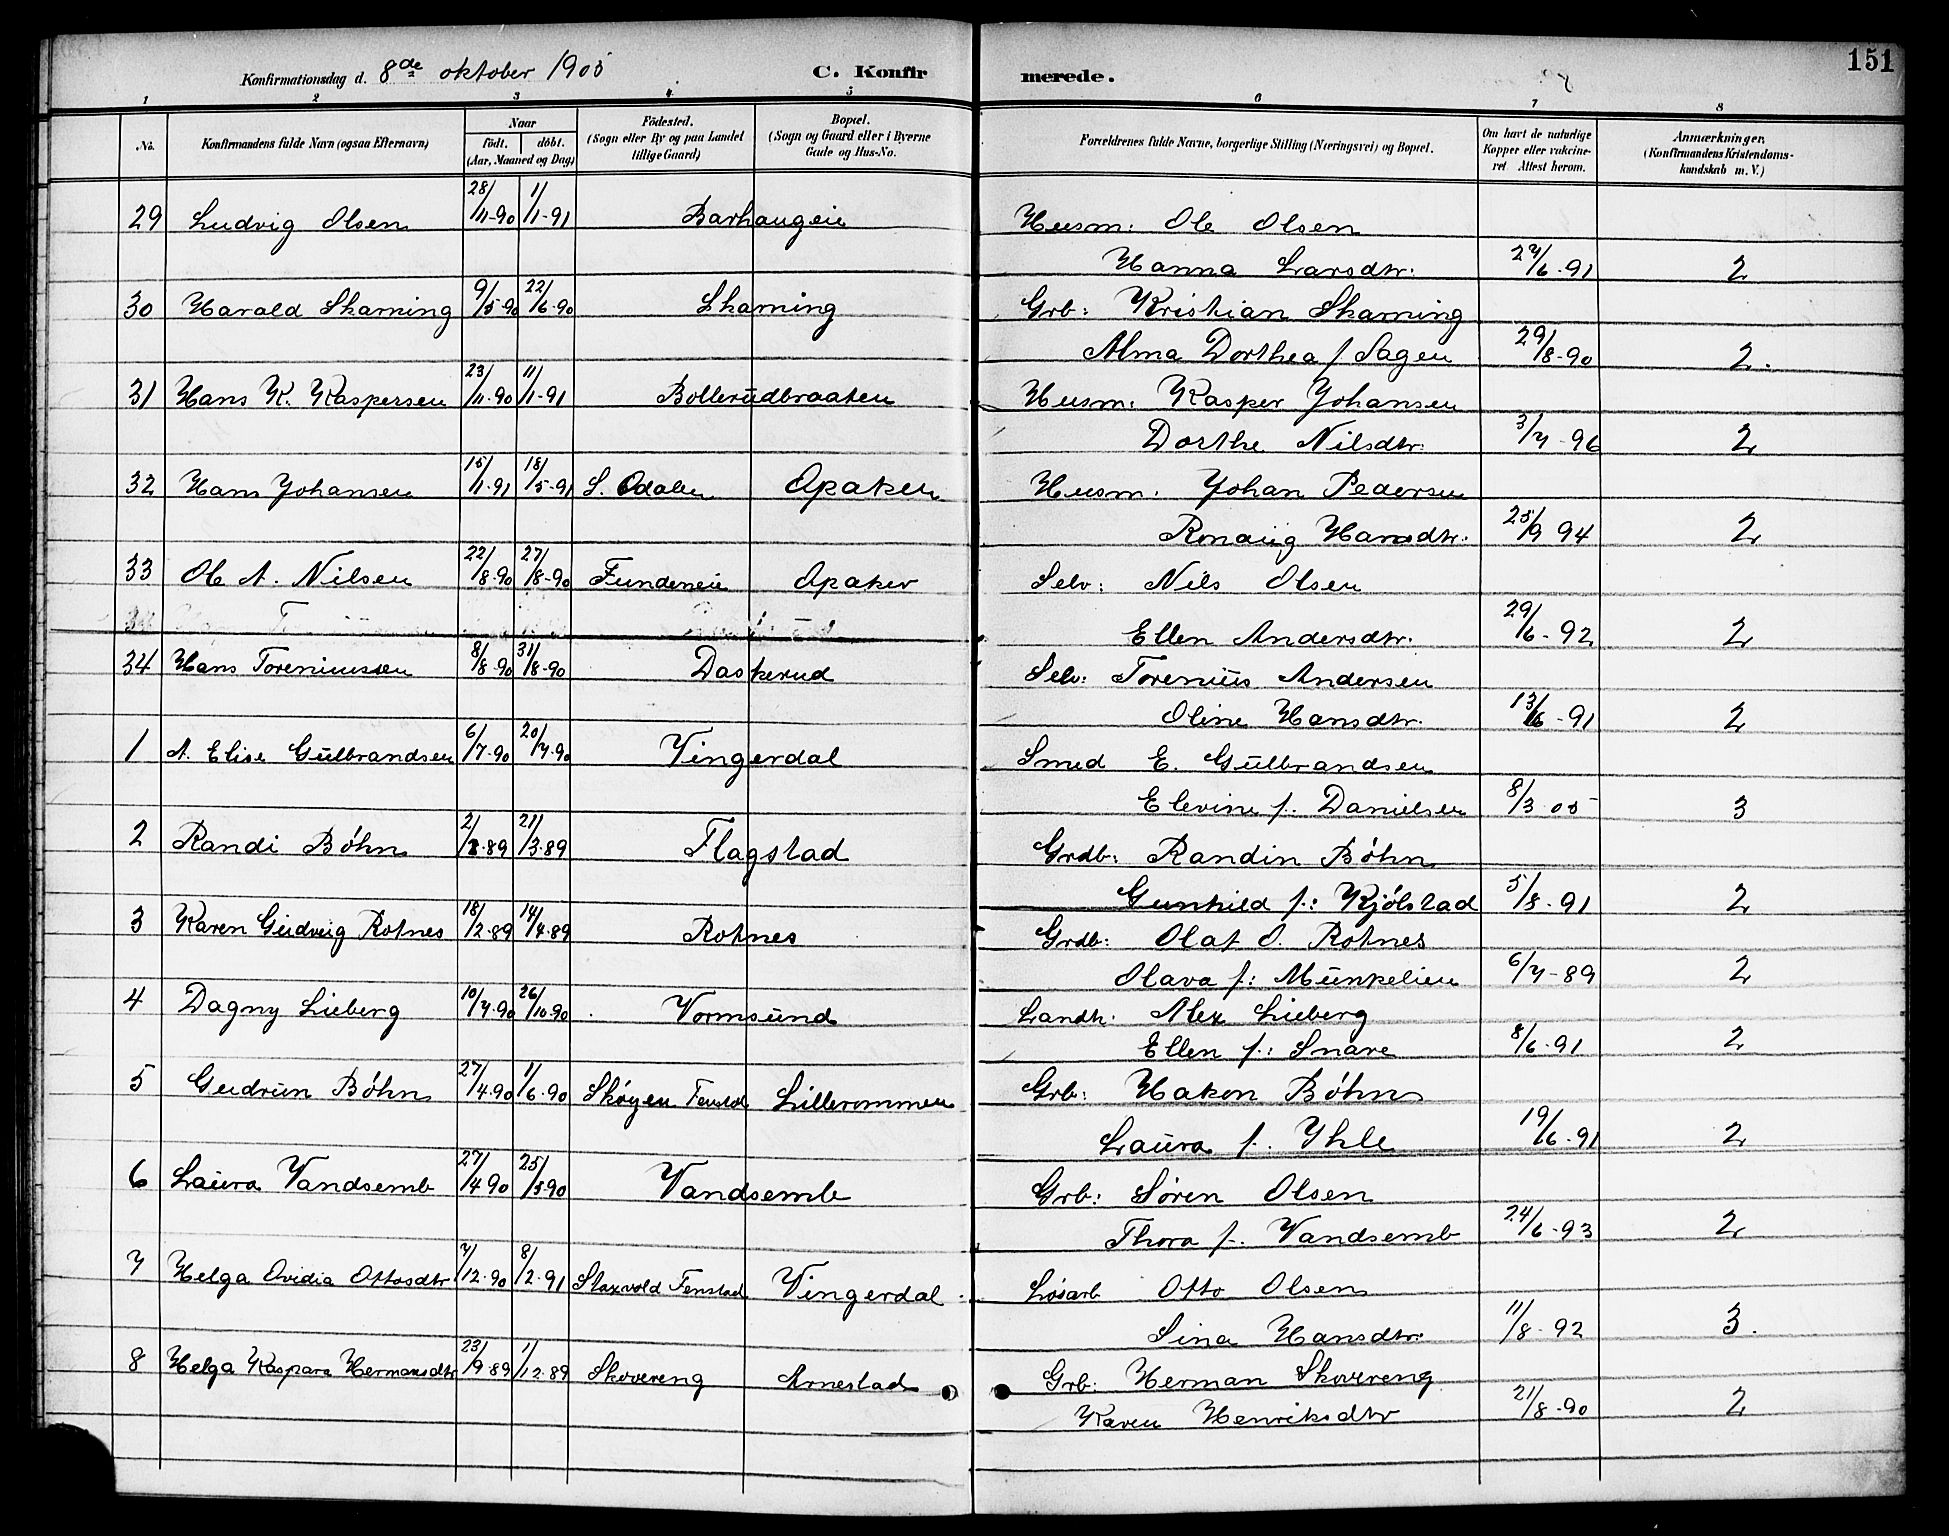 151
Konfirmationsdag d. 8de oktober 1905 C. Konfirmerede.
1 2 3 4 5 6 7 8
No. Konfirmandens fulde Navn (ogsaa Efternavn) Naar født. døbt. (Aar, Maaned og Dag) Fødested. (Sogn eller By og paa Landet tillige Gaard) Bopæl. (Sogn og Gaard eller i Byerne Gade og Hus-No. Forældrenes fulde Navne, borgerlige Stilling (Næringsvei) og Bopæl. Om havt de naturlige Kopper eller vakcineret. Attest herom. Anmærkninger. (Konfirmandens Kristendomskundskab m. V.)
29 Ludvig Olsen 28/11-90 1/1-91 Barhaugeie Husm: Ole Olsen
Hanna Larsdtr. 24/6-91 2
30 Harald Skarning 9/5-90 22/6-90 Skarning Grb: Kristian Skarning
Alma Dorthea f. Sagen 29/8-90 2.
31 Hans K. Kaspersen 23/11-90 11/1-91 Bollerudbraaten Husm: Kasper Johansen
Dorthe Nilsdtr. 3/7-96 2
32 Hans Johansen 15/1-91 18/5-91 S. Odalen Opaker Husm. Johan Pedersen
Ronaug Hansdtr. 25/9 94 2
33 Ole A. Nilsen 22/8-90 27/8-90 Fundeneie Opaker Selv: Nils Olsen
Ellen Andersdtr. 29/6-92 2
34 Hans Toreniussen 8/8-90 31/8-90 Daskerud Selv: Torenius Andersen
Oline Hansdtr. 13/6-91 2
1 A. Elise Gulbrandsen 6/7-90 20/7-90 Vingerdal Smed E. Gulbrandsen
Elevine f. Danielsen 8/3 05 3
2 Randi Bøhn 2/1-89 21/3-89 Flagstad Grdb: Randin Bøhn
Gunhild f: Kjølstad 5/8-91 2
3 Karen Gudveig Rotnes 18/2-89 14/4-89 Rotnes Grdb: Olaf O. Rotnes
Olava f: Munkelien 6/7-89 2
4 Dagny Lieberg 10/7-90 26/10-90 Vormsund Landh. Alex Lieberg
Ellen f: Snare 8/6-91 2
5 Gudrun Bøhn 27/4-90 1/6-90 Skøyen Fenstd Lillerommen Grb: Hakon Bøhn
Laura f. Ihle 19/6-91 2
6 Laura Vandsemb 27/4 90 25/5 90 Vandsemb Grb: Søren Olsen
Thora f. Vandsemb 24/6-93 2
7 Helga Ovidia Ottosdtr 7/12-90 8/2-91 Slaxvold Fenstad Vingerdal Løsarb Otto Olsen
Sina Hansdtr. 11/8-92 3.
8 Helga Kaspara Hermansdtr 23/9-89 1/12-89 Skovereng Arnestad Grb: Herman Skovereng
Karen Henriksdtr 21/8-90 2